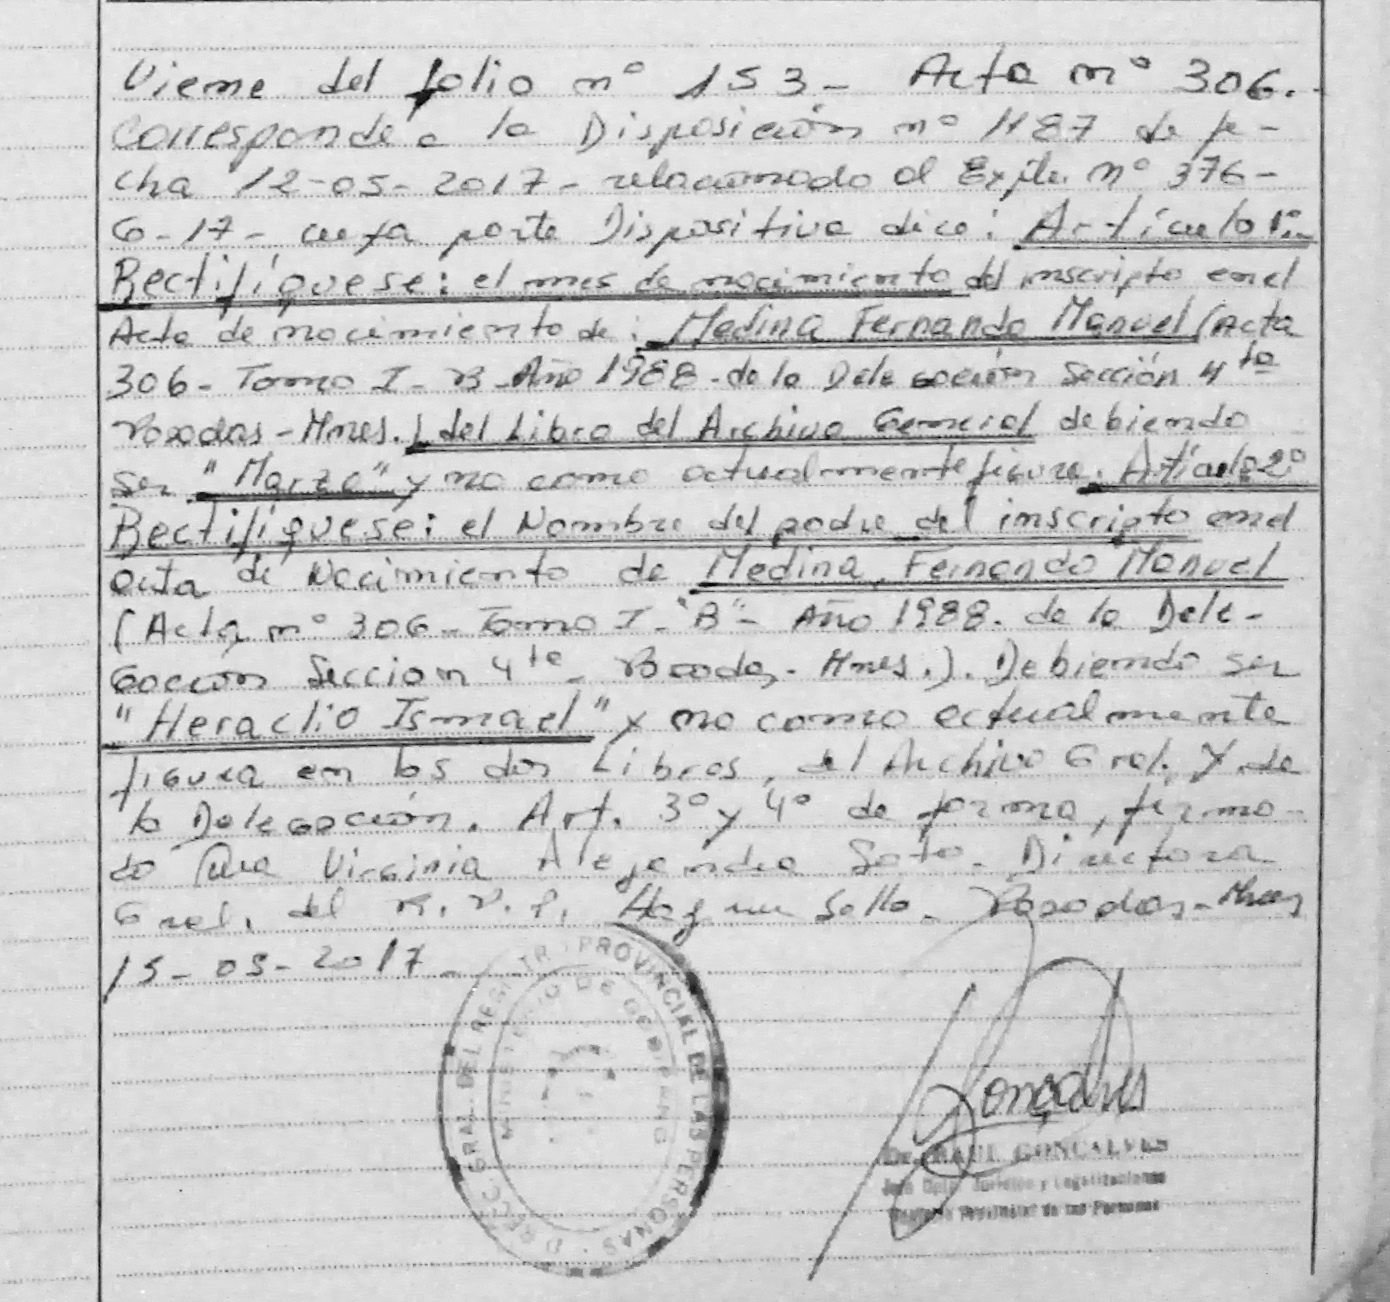 Viene del folio nº 153- Acta nº 306.
Corresponde a la Disposición nº 1187 de fe-
cha 12-05-2017- relacionado al Expte. nº 376-
G-17- cuya parte Dispositiva dice: Artículo 1º-
Rectifíquese: el mes de nacimiento del inscripto en el
Acta de nacimiento de: Medina Fernando Manuel (Acta
306- Tomo I- B- Año 1988- de la Delegación Sección 4ta
Posadas-Mnes.) del Libro del Archivo General debiendo
ser "Marzo" y no como actualmente figura. Artículo 2º
Rectifíquese: el Nombre del padre del inscripto en el
acta de Nacimiento de Medina, Fernando Manuel
(Acta nº 306- Tomo I- "B"- Año 1988. de la Dele-
gación Seccion 4ta- Posadas- Mnes.). Debiendo ser
"Heraclio Ismael" y no como actualmente
figura en los dos Libros, del Archivo Gral. Y de
la Delegación. Art. 3º y 4º de forma, firma-
do Virginia Alejandra Soto- Directora
Gral. del R.P.P. Hay un Sello- Posadas-Mnes
15-05-2017-
DIRECC. GRAL. DEL REGISTR PROVINCIAL DE LAS PERSONAS
MINISTERIO DE GOBIERNO
Gonçalves
Dr. RAUL GONCALVES
Jefe Dpto. Jurídico y Legalizaciones
Registro Provincial de las Personas